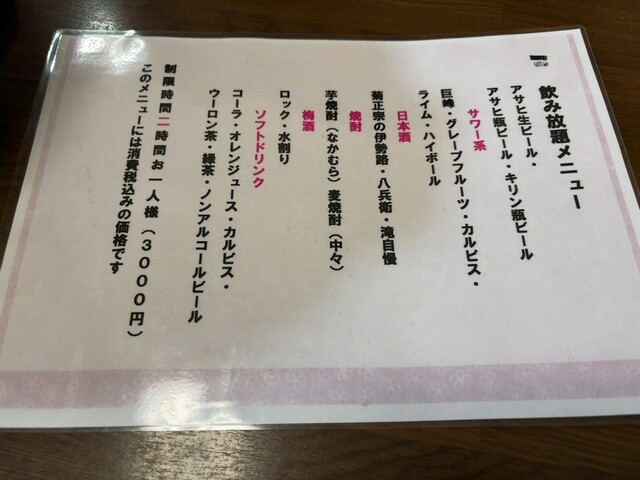 飲み放題メニュー
アサヒ生ビール・
アサヒ瓶ビール・キリン瓶ビール
サワー系
巨峰・グレープフルーツ・カルピス・
ライム・ハイボール
日本酒
菊正宗の伊勢路・八兵衛・滝自慢
焼酎
芋焼酎（なかむら）麦焼酎（中々）
梅酒
ロック・水割り
ソフトドリンク
コーラ・オレンジュース・カルピス・
ウーロン茶・緑茶・ノンアルコールビール
制限時間二時間お一人様（３０００円）
このメニューには消費税込みの価格です